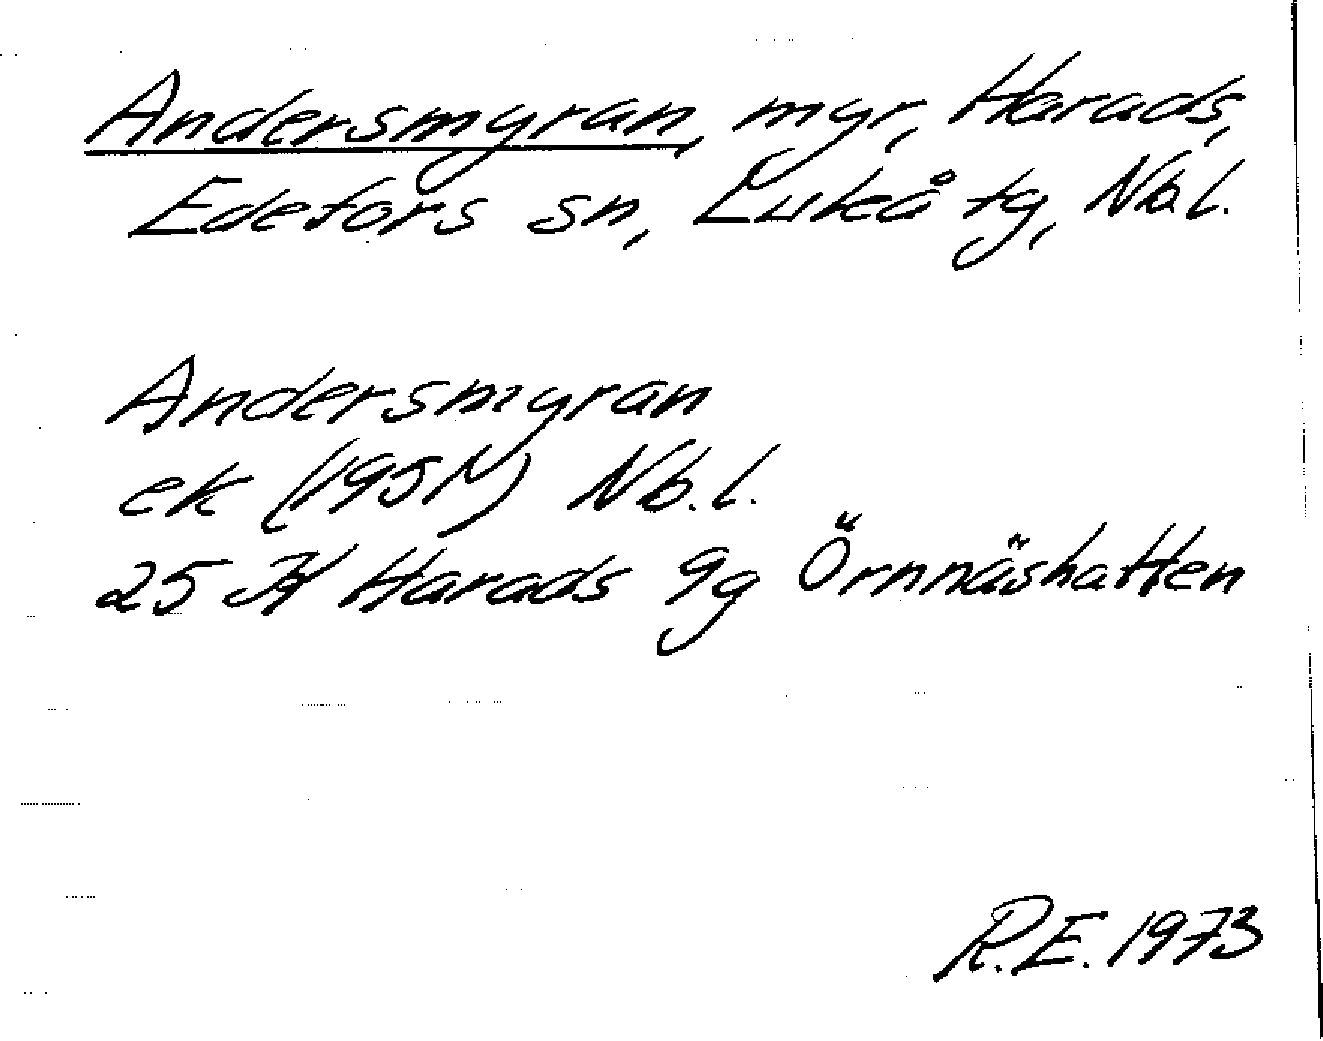 Andersmyran, myr, Harads,
Edefors sn, Luleå tg, Nb.l.
Andersmyran
ek (1951) Nb.l.
25 K Harads 9g Örnnäshatten
R.E. 1973